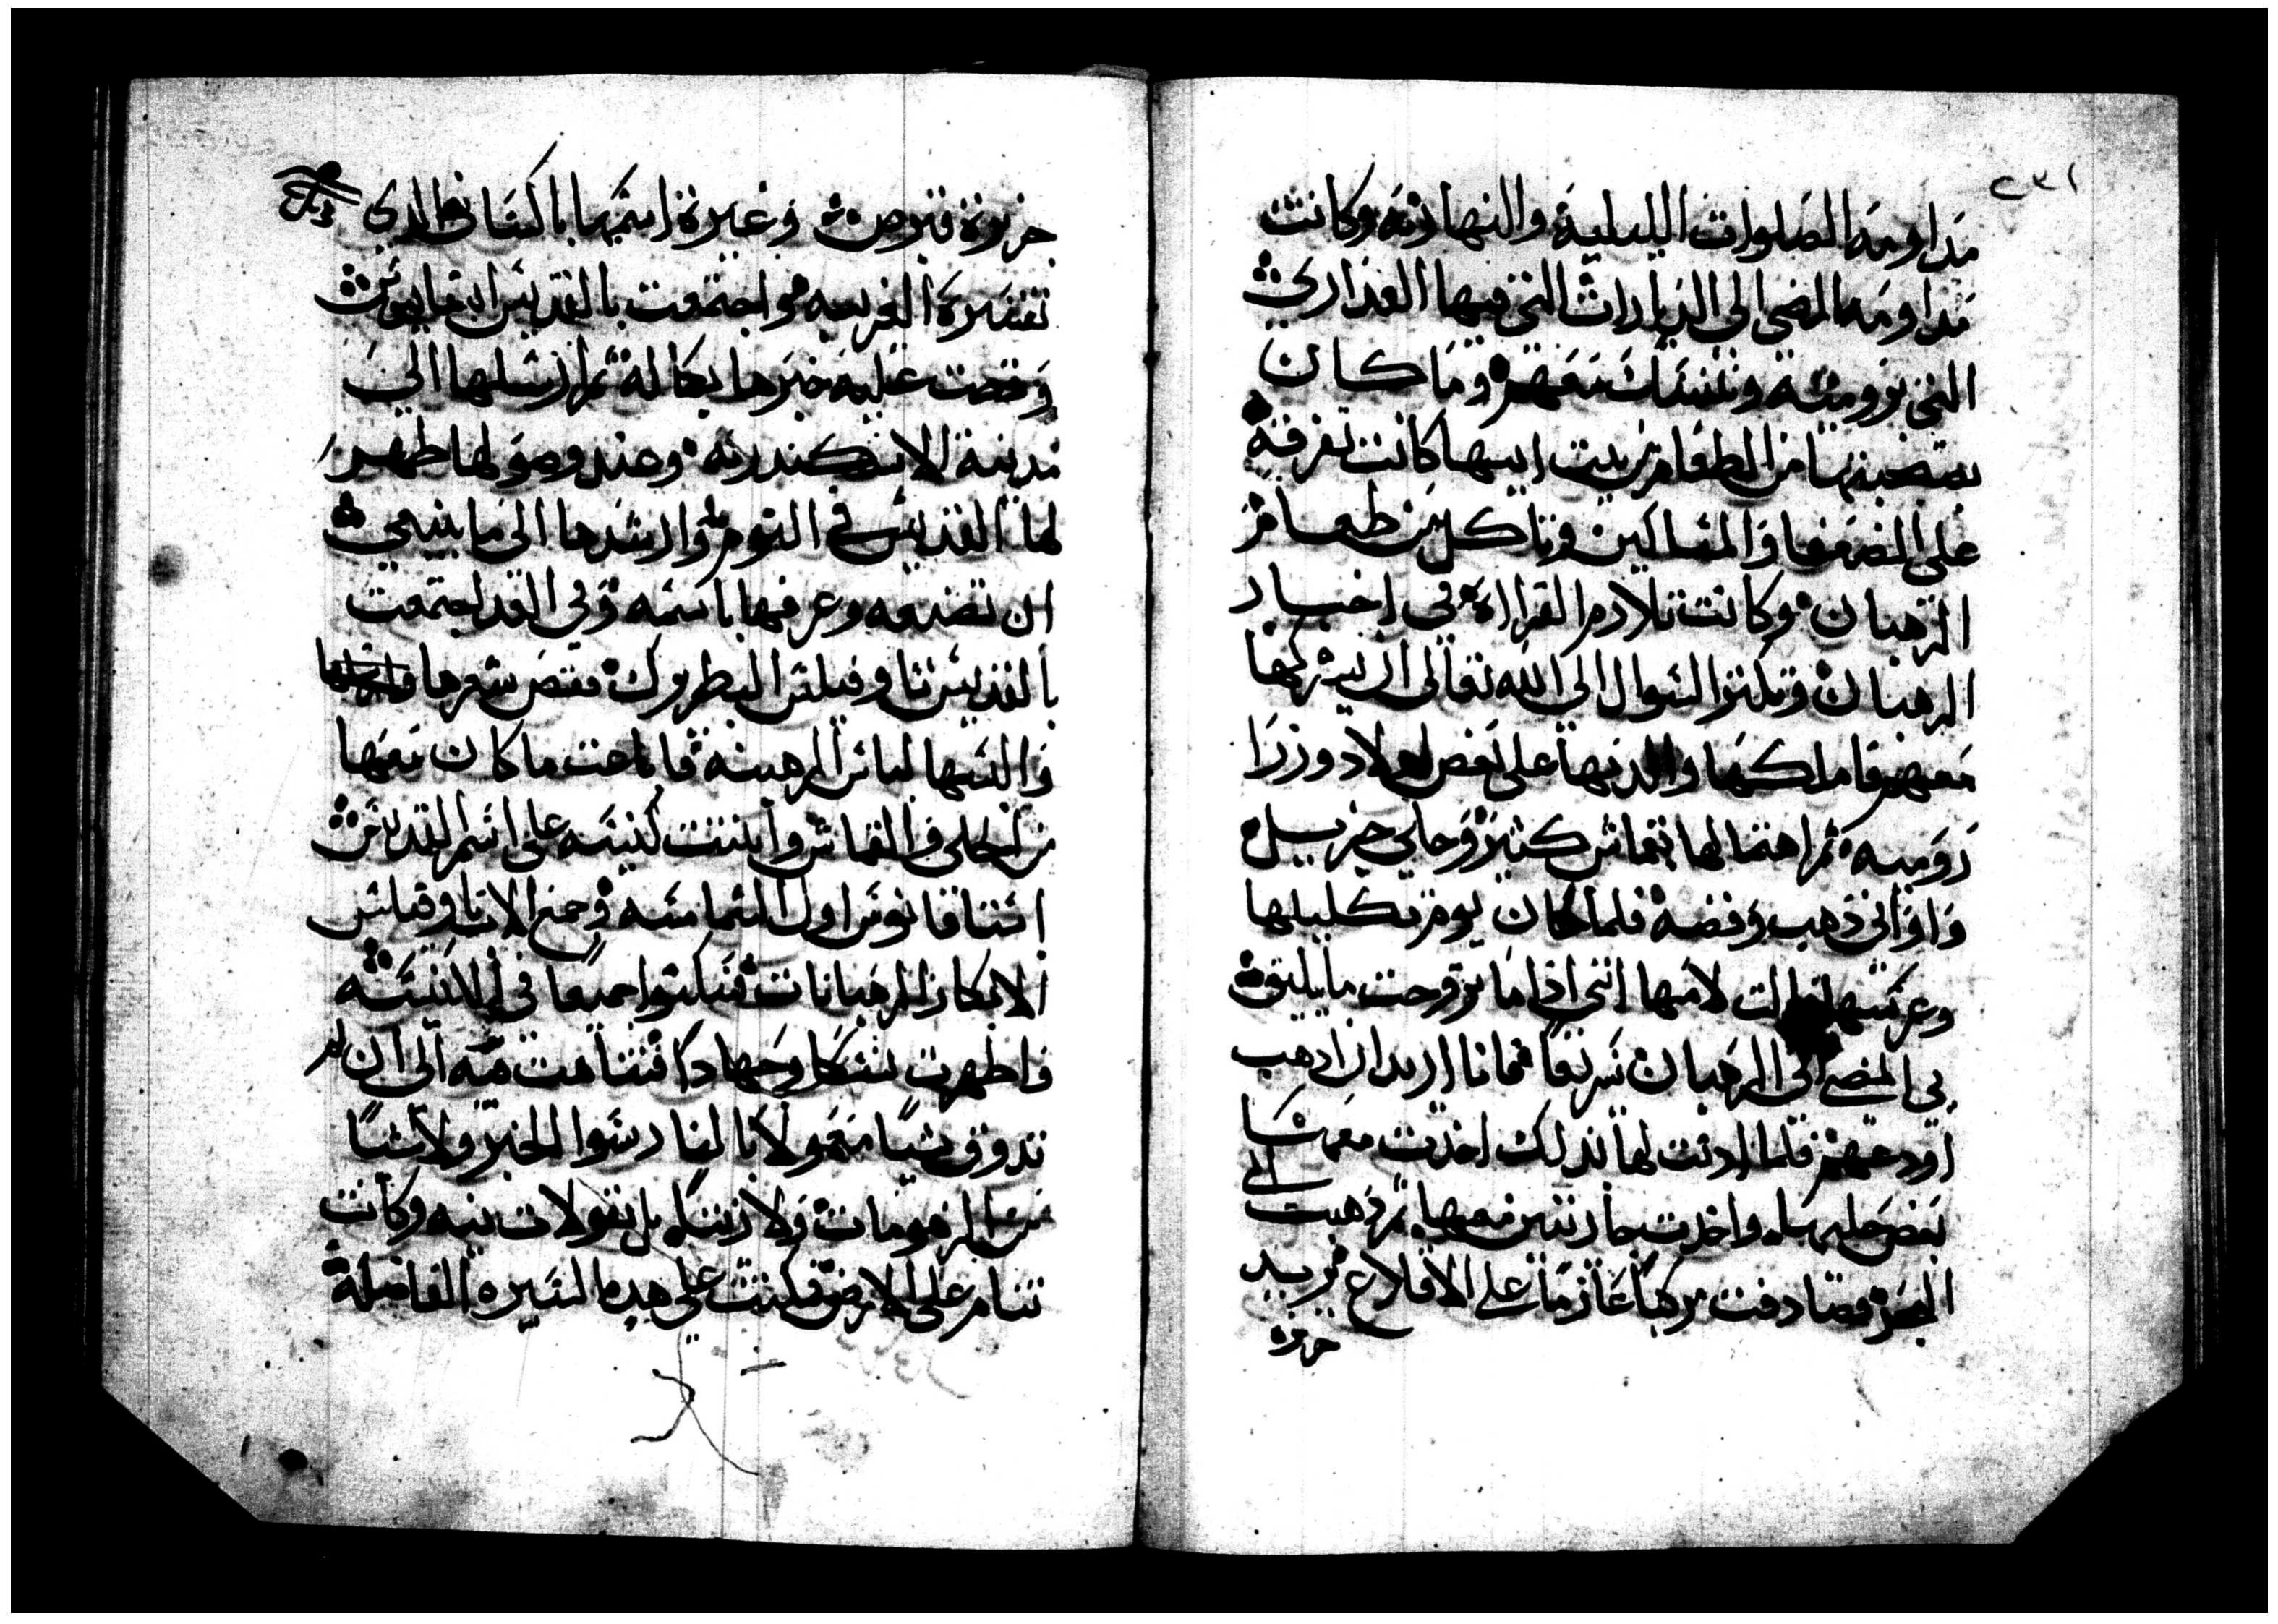 ٢٣١
مداومه الصلوات الليلية والنهاريه وكانت
مداومه المضى الى الديارات التي فيها العذاري
التي برومية وتتنسك معهم وما كان
من الطعام من بيت ابيها كانت تفرقه
على الضعفا والمساكين وتاكل من طعام
الرهبان وكانت تلازم القراه في اخبار
الرهبان وتكثر السوال الى الله تعالى ان يشركها
معهم فاملكها والديها على بعض اولاد وزرا
رومية ثم اهتما لها بقماش كثير وحلي جزيل
واواني ذهب وفضه فلما كان يوم تكليلها
وعرسها قالت لامها انني اذا ما تزوجت ما يليق
بي المضي الى الرهبان سريعا فانا اريد ان اذهب
اودعهم فلما اذنت لها بذلك اخذت معها
الى
بعض حليها واخذت جاريتين معها ثم ذهبت
البحر فصادفت مركبا عازما على الاقلاع يريد
جزيرة
جزيرة قبرص وغيرة اسمها الذي
بالقديس ابيفانيوس
وقصت عليه خبرها بكاله ثم ارسلها الى
مدينة الاسكندريه وعند وصولها ظهر
لها القديس في النوم وارشدها الى ما ينبغي
ان تصنعه وعرفها باسمه وفي الغد اجتمعت
بالقديس تاوفيلس البطروك فقص شعرها
والبسها لباس الرهبنه فاباعت ما كان معها
من الحلي والقماش وابتنت كنيسه على اسم القديس
استافانوس اول الشمامسه وجمع الاب تاوفيلس
الابكار الرهبانات فسكنوا جميعا في الكنيسه
واظهرت نسكا وجهادا فتناهت فيه الى ان لم
تذوق شيا معمولا بالنار سوا الخبز ولا شيا
من ولا زيتا بل بقولات نيه وكانت
تنام على الارض فمكثت على هذه السيره الفاضلة